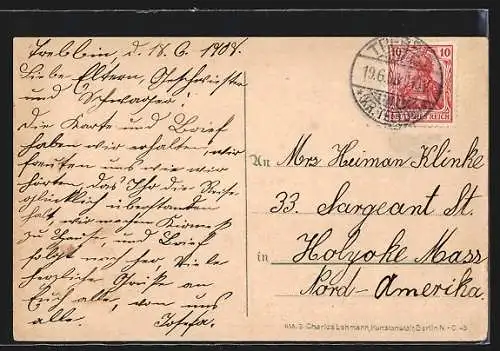 Trebbin, d. 18. 6. 1908.
Liebe Eltern, Geschwister
und Schwager!
Die Karte und Brief
haben wir erhalten, wir
freuten uns wie wir
hörten, das Ihr die Reise
glücklich überstanden
habt, wir machen
zu Hause, und Brief
folgt nach her. Viele
herzliche Grüße an
Euch alle, von uns
alle. Josefa.
10 10
DEUTSCHES REICH
19.6.
An Mrs Heiman Klinke
33. Sargeant St.
in Holyoke Mass
Nord-Amerika.
Charles Lehmann, Kunstanstalt, Berlin N.O. 43